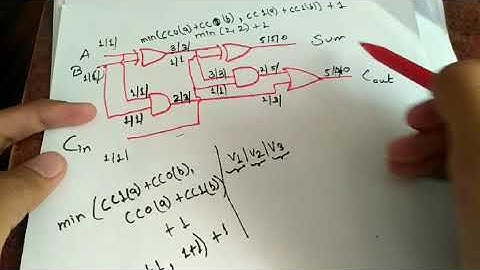 min(CC0(a)+CC0(b), CC1(a)+CC1(b)) + 1
min(2,2)+1
A 1/1/
B 1/1/
3/3/
1/1/
5/5/0
Sum
1/1/
1/1/
2/3/
3/3/
1/1/
2/5/
2/3/
Cout
Cin
1/1/
min (CC1(a)+CC0(b),
CC0(a)+CC1(b))
+ 1
1+1) + 1
V1/V2/V3